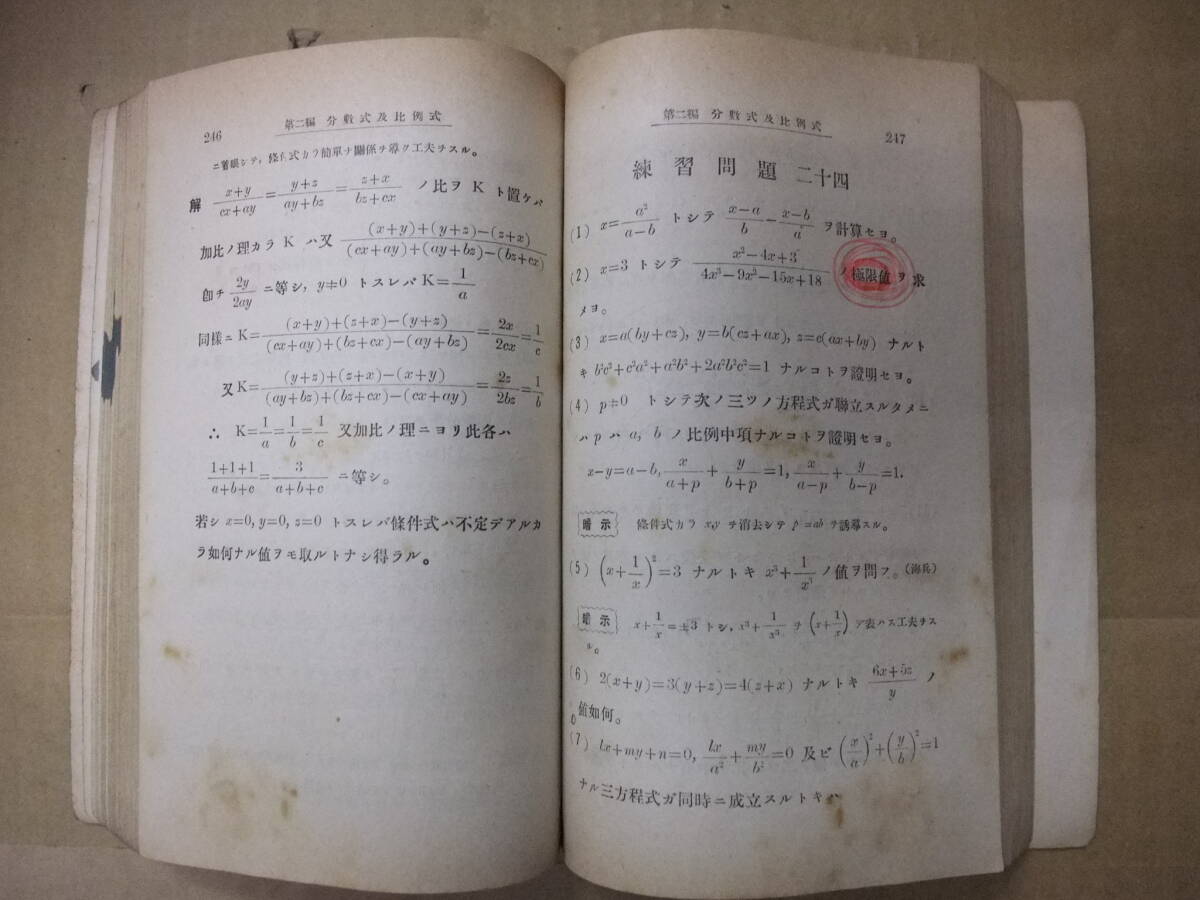 246
第二編 分數式及比例式
ニ着眼シテ, 條件式カラ簡單ナ關係ヲ導ク工夫ヲスル。
解 (x+y)/(cx+ay)=(y+z)/(ay+bz)=(z+x)/(bz+cx) ノ比ヲ K ト置ケバ
加比ノ理カラ K ハ又 ((x+y)+(y+z)−(z+x))/((cx+ay)+(ay+bz)−(bz+cx))
卽チ 2y/2ay ニ等シ, y≠0 トスレバ K=1/a
同樣ニ K=((x+y)+(z+x)−(y+z))/((cx+ay)+(bz+cx)−(ay+bz))=2x/2cx=1/c
又 K=((y+z)+(z+x)−(x+y))/((ay+bz)+(bz+cx)−(cx+ay))=2z/2bz=1/b
∴ K=1/a=1/b=1/c 又加比ノ理ニヨリ此各ハ
(1+1+1)/(a+b+c)=3/(a+b+c) ニ等シ。
若シ x=0, y=0, z=0 トスレバ條件式ハ不定デアルカ
ラ如何ナル値ヲモ取ルトナシ得ラル。
第二編 分數式及比例式
247
練習問題 二十四
(1) x=a²/(a−b) トシテ (x−a)/b−(x−b)/a ヲ計算セヨ。
(2) x=3 トシテ (x²−4x+3)/(4x³−9x²−15x+18) ノ極限値ヲ求
メヨ。
(3) x=a(by+cz), y=b(cz+ax), z=c(ax+by) ナルト
キ b²c²+c²a²+a²b²+2a²b²c²=1 ナルコトヲ證明セヨ。
(4) p≠0 トシテ次ノ三ツノ方程式ガ聯立スルタメニ
ハ p ハ a, b ノ比例中項ナルコトヲ證明セヨ。
x−y=a−b, x/(a+p)+y/(b+p)=1, x/(a−p)+y/(b−p)=1.
暗示 條件式カラ x,y ヲ消去シテ p²=ab ヲ誘導スル。
(5) (x+1/x)²=3 ナルトキ x³+1/x³ ノ値ヲ問フ。(海兵)
暗示 x+1/x=±√3 トシ, x³+1/x³ ヲ (x+1/x) デ表ハス工夫ヲス
ル。
(6) 2(x+y)=3(y+z)=4(z+x) ナルトキ (6x+5z)/y ノ
値如何。
(7) lx+my+n=0, lx/a²+my/b²=0 及ビ (x/a)²+(y/b)²=1
ナル三方程式ガ同時ニ成立スルトキハ